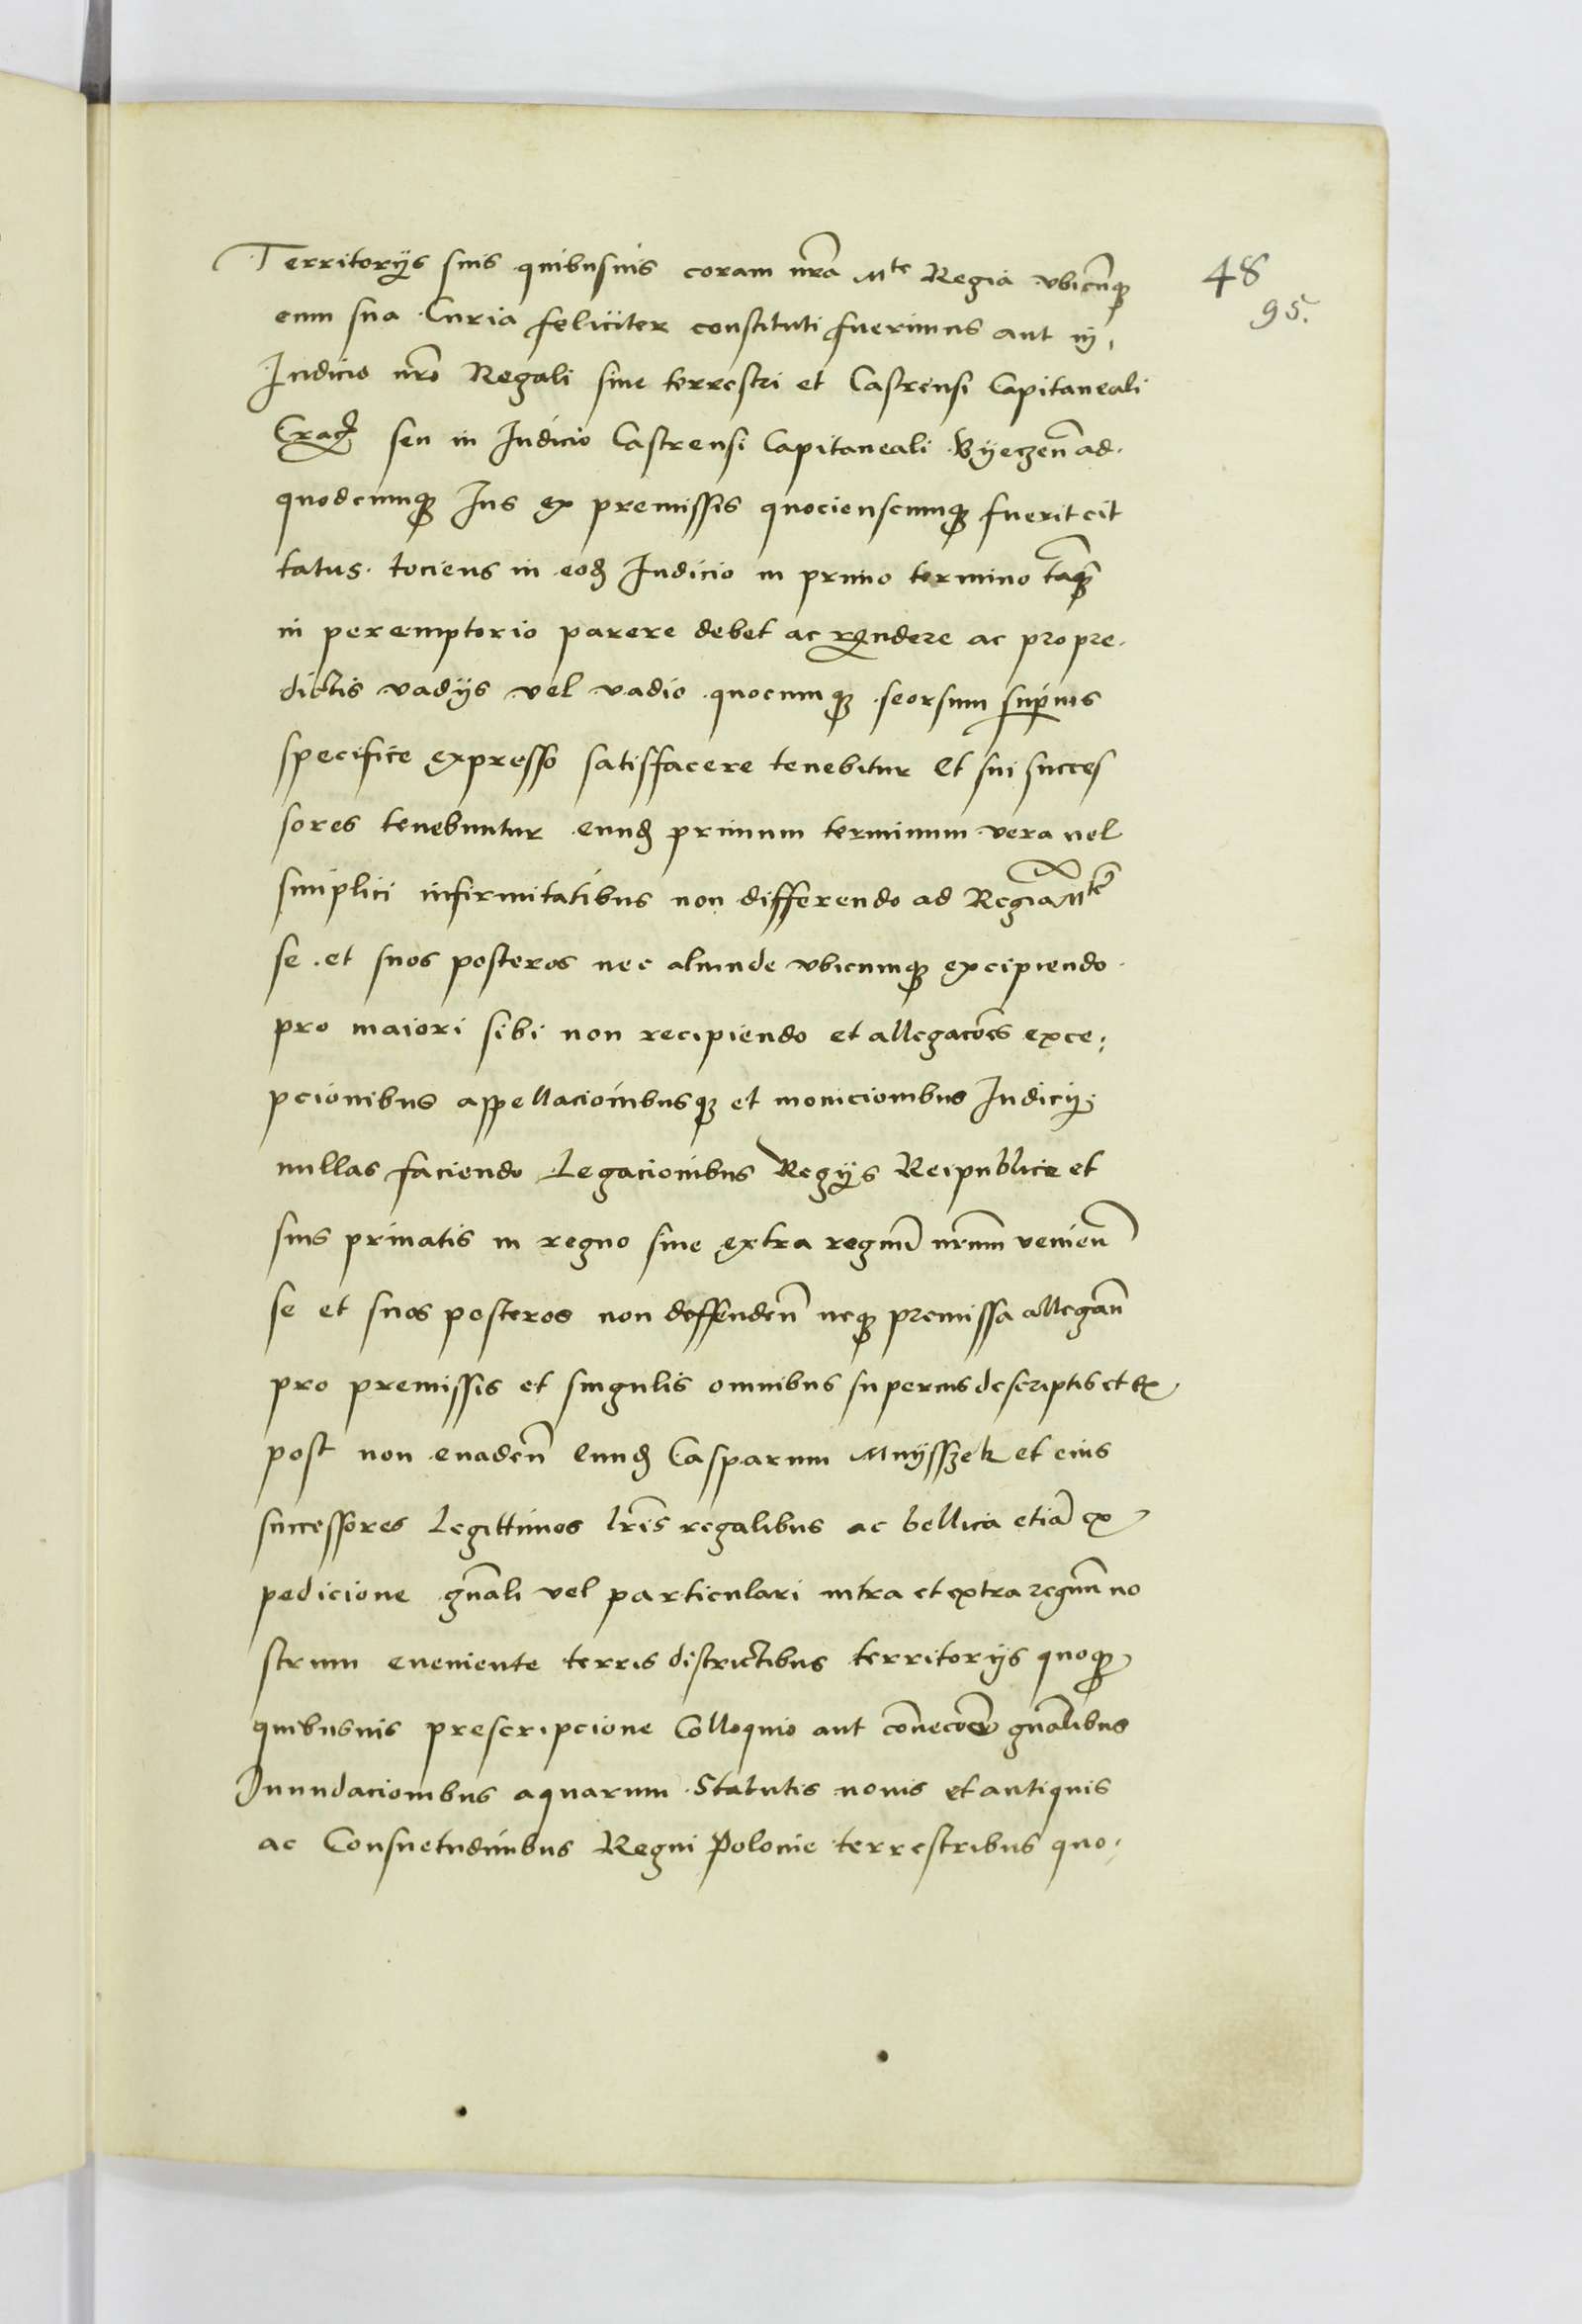 Territorÿs suis quibusuis coram nrã Mte Regia vbicũq3
cum sua Curia feliciter constituti fuerimus aut in
48
95.
Iudicio nrõ Regali siue terrestri et Castrensi Capitaneali
Crac̃ seu in Iudicio Castrensi Capitaneali Byeczeñ ad
quodcumq3 Ius ex premissis quocienscumq3 fuerit cit
tatus tociens in eod3 Iudicio in primo termino tãq3
in peremptorio parere debet ac rñdere ac pro pre
dictis vadÿs vel vadio quocumq3 seorsum supius
specifice expresso satisfacere tenebitur Et sui succes
sores tenebuntur eund3 primum terminum vera uel
simplici infirmitatibus non differendo ad Regiã Mte
se et suos posteros nec aliunde vbicumq3 excipiendo
pro maiori sibi non recipiendo et allegacões exce
pcionibus appellacionibusq3 et moniciombus Iudicÿ
nullas faciendo Legacionibus Regÿs Reipublice et
suis priuatis in regno siue extra regnũ nrũm venieñ
se et suos posteros non deffendeñ neq3 premissa allegañ
pro premissis et singulis omnibus superius descriptis et ex
post non euadeñ Eund3 Casparum Mnÿsszek et eius
successores Legittimos lrĩs regalibus ac bellica etiã ex
pedicione gnãli vel particulari intra et extra regnũ no
strum eueniente terris districtibus territorÿs quoq3
quibusuis prescripcione Colloquio aut conuecõe gnãlibus
Inundaciombus aquarum Statutis nouis et antiquis
ac Consuetudinibus Regni Polonie terrestribus quo